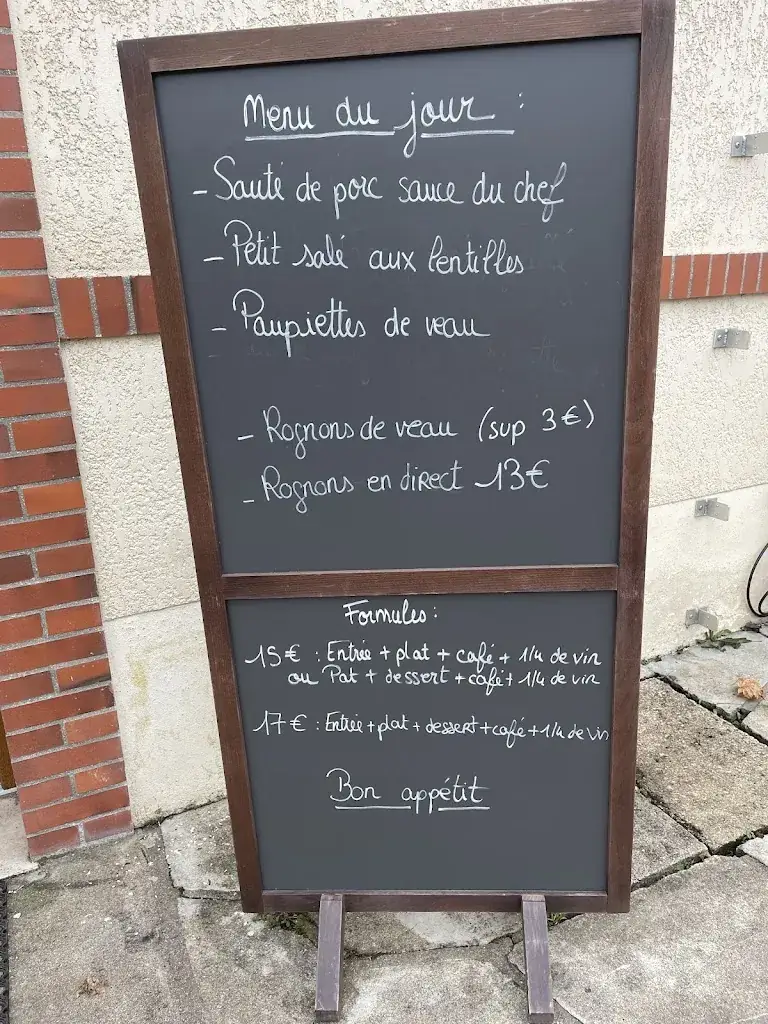 Menu du jour :
- Sauté de porc sauce du chef
- Petit salé aux lentilles
- Paupiettes de veau
- Rognons de veau (sup 3€)
- Rognons en direct 13€
Formules :
15€ : Entrée + plat + café + 1/4 de vin
ou Pat + dessert + café + 1/4 de vin
17€ : Entrée + plat + dessert + café + 1/4 de vin
Bon appétit